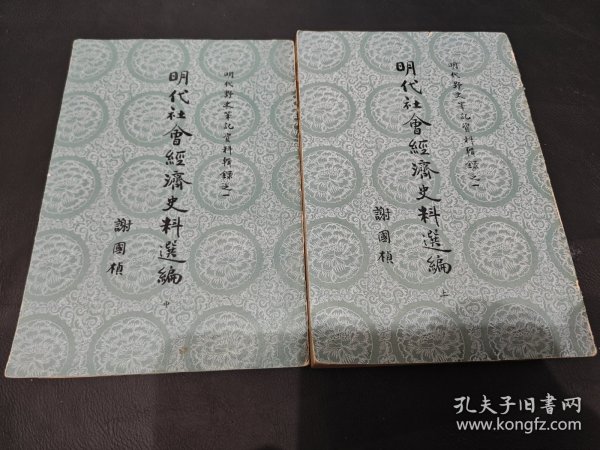 明代野史筆記資料輯錄之一
明代社會經濟史料選編
中
謝國楨
明代野史筆記資料輯錄之一
明代社會經濟史料選編
上
謝國楨
孔夫子旧书网
www.kongfz.com